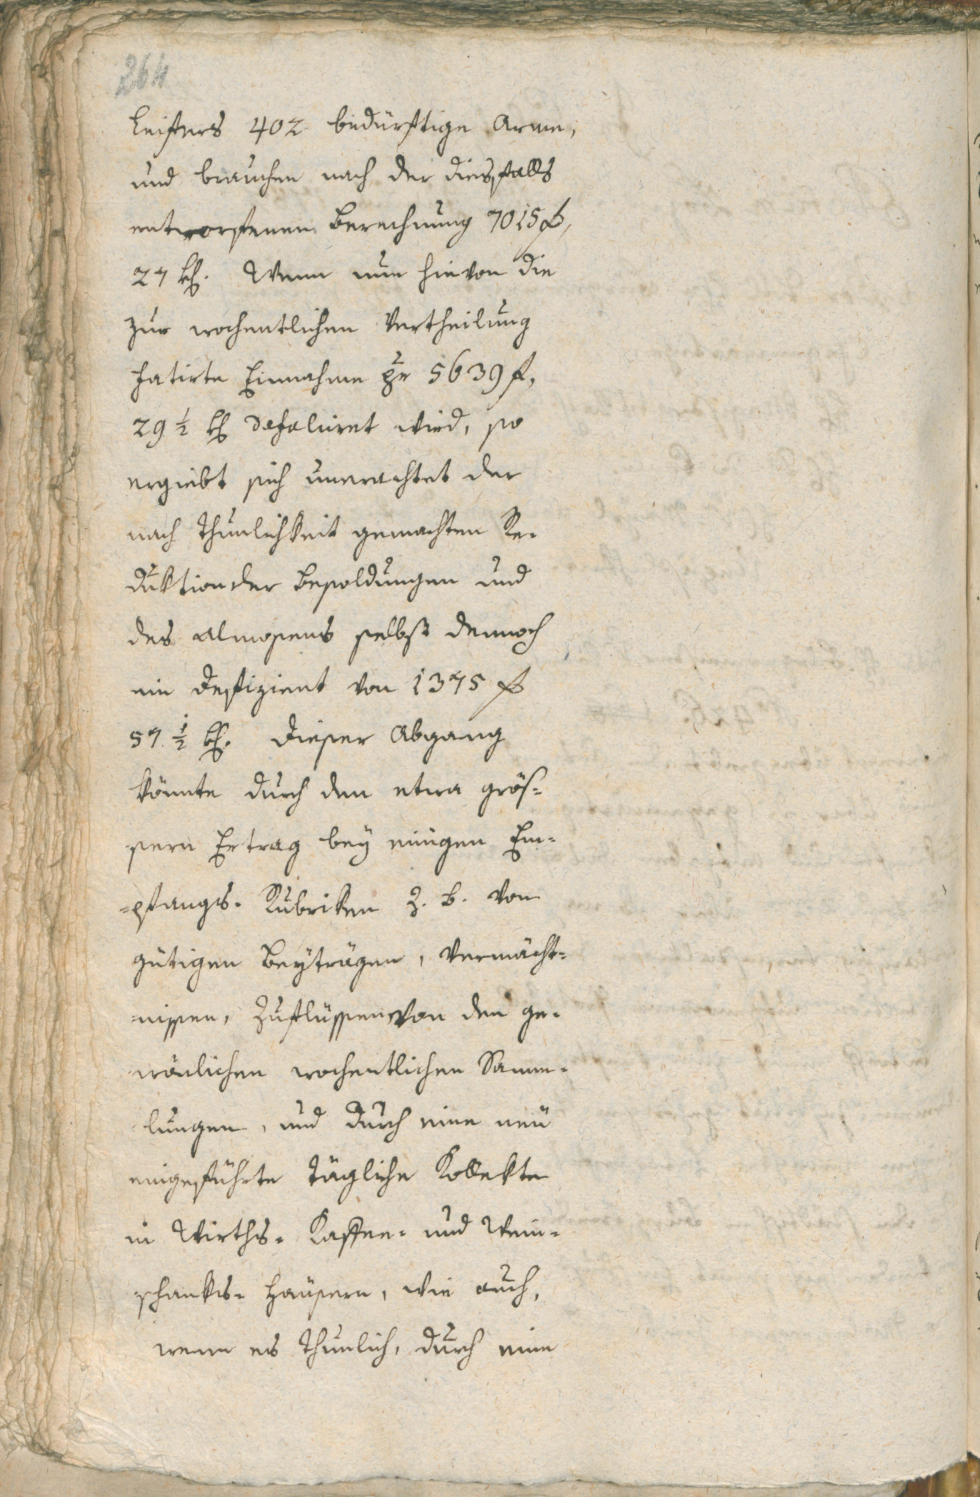 264
leisters 402 bedürftige Arme,
und brauchen nach der diesfalls
entworfenen Berechnung 7015 f,
27 kr. Wenn nun hievon die
zur wochentlichen Vertheilung
fatirte Einnahme per 5639 f,
29 ½ kr defalciret wird, so
ergiebt sich unerachtet der
nach Thunlichkeit gemachten Re-
duktion der Besoldungen und
des Almosens selbst dennoch
ein Deffizient von 1375 f
57 ½ kr. Dieser Abgang
könnte durch den etwa grös-
sern Ertrag bey einigen Em-
-pfangs- Rubriken Z. B. von
gütigen Beyträgen, Vermächt-
nissen, Zuflüssen von den ge-
wönlichen wochentlichen Samm-
lungen, und durch eine neu
eingeführte tägliche Kollekte
in Wirths- Kaffee- und Wein-
schanks- Häusern, wie auch,
wenn es thunlich, durch eine